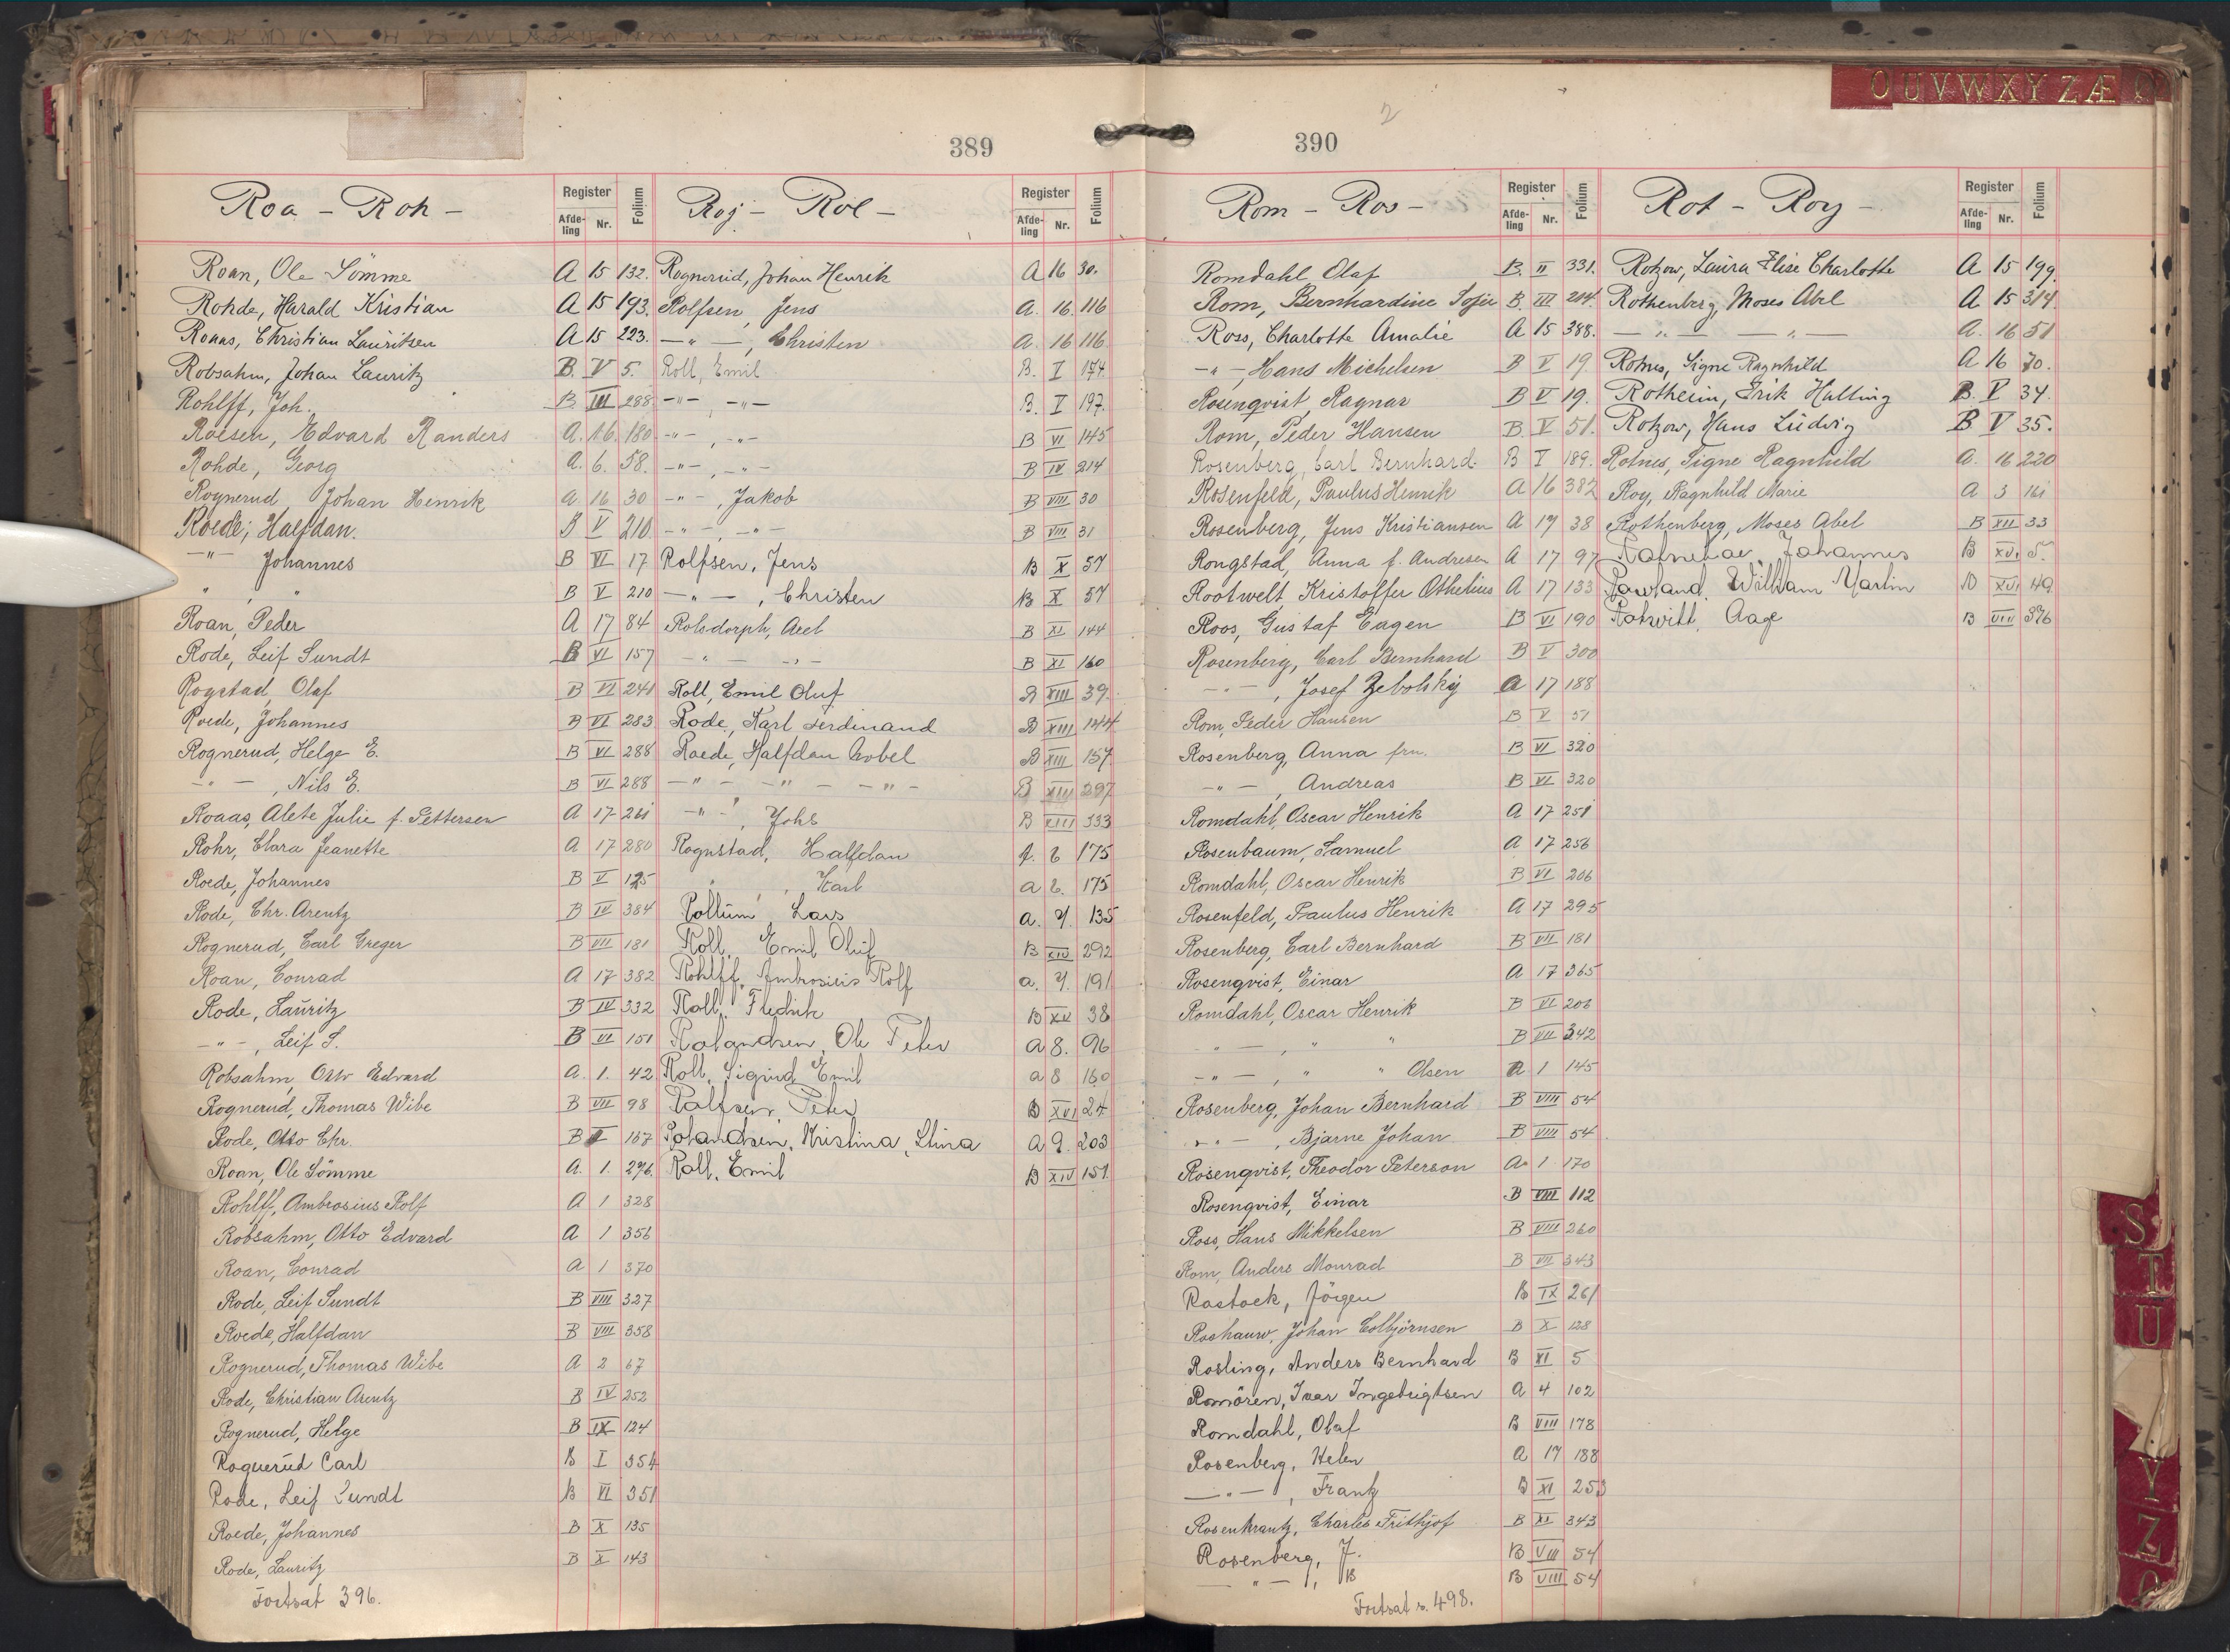 O U V W X Y Z Æ Ø
389
Roa - Roh -
Register
Afde-
ling
Nr.
Folium
Roan, Ole Sömme A 15 132.
Rohde, Harald Kristian A 15 193.
Roaas, Christian Lauritsen A 15 223.
Robsahm, Johan Lauritz B. V 5.
Rohlff, Joh. B. III 288
Roesen, Edvard Randers A. 16. 180
Rohde, Georg A. 6. 58.
Rognerud Johan Henrik A 16 30
Roede, Halfdan. B V 210
-"- Johannes B VI 17
" " B V 210
Roan, Peder A 17 84
Rode, Leif Sundt B VI 157
Rogstad, Olaf B VI 241
Roede, Johannes B VI 283
Rognerud, Helge E. B VI 288
-"-, Nils E. B VI 288
Roaas, Alete Julie f. Pettersen A 17 261
Rohr, Clara Jeanette A 17 280
Roede, Johannes B V 125
Rode, Chr. Arentz B IV 384
Rognerud, Carl Greger B VII 181
Roan, Conrad A 17 382
Rode, Lauritz B IV 332
-"-, Leif S. B VI 151
Robsahm, Otto Edvard A. 1. 42
Rognerud, Thomas Wibe B VII 98
Rode, Otto Chr. B I 167
Roan, Ole Sömme A. 1. 296.
Rohlff, Ambrosius Rolf A 1 328
Robsahm, Otto Edvard A 1 356
Roan, Conrad A 1 370
Rode, Leif Sundt B VIII 327
Roede, Halfdan B VIII 358
Rognerud, Thomas Wibe A 2 67
Rode, Christian Arentz B IV 252
Rognerud, Helge B IX 124
Rognerud Carl B I 354
Rode, Leif Sundt B VI 351
Roede, Johannes B X 135
Rode, Lauritz B X 143
Fortsat 396.
Roj - Rol -
Register
Afde-
ling
Nr.
Folium
Rognerud, Johan Henrik A 16 30.
Rolfsen, Jens A. 16. 116
-"-, Christen A. 16 116
Roll, Emil B. I 174
-"-, -"- B. I 197.
-"-, -"- B VI 145
-"-, -"- B IV 214
-"-, Jakob B VIII 30
-"-, -"- B VIII 31
Rolfsen, Jens B X 57
-"-, Christen B X 57
Rolsdorph, Axel B XI 144
-"- -"- B XI 160
Roll, Emil Oluf B XIII 39.
Rode, Karl Ferdinand B XIII 144
Roede, Halfdan Hobel B XIII 157
-"- -"- -"- B XIII 297
-"-, Johs B XIII 333
Rognstad, Halfdan A. 6 175
" , Karl A 6. 175
Rollum, Lars A. 7. 135
Roll, Emil Oluf B XIV 292
Rohlff, Ambrosius Rolf A. 7. 191
Roll, Fredrik B XV 38
Rolandsen, Ole Peter A 8. 96
Roll, Sigurd Emil A 8 160
Rolfsen, Peter B XVI 24
Rolandsen, Kristina, Stina A 9. 203
Roll, Emil B XIV 151.
2
390
Rom - Ros -
Register
Afde-
ling
Nr.
Folium
Romdahl Olaf B. II 331.
Rom, Bernhardine Sofie B. III 214.
Ross, Charlotte Amalie A 15 388.
-"-, Hans Michelsen B V 19
Rosenqvist, Ragnar B V 19.
Rom, Peder Hansen B. V 51.
Rosenberg, Carl Bernhard B I 189.
Rosenfeld, Paulus Henrik A 16 382
Rosenberg, Jens Kristiansen A 17 38
Rongstad, Anna f. Andresen A 17 97
Rootwelt Kristoffer Othelius A 17 133
Roos, Gustaf Eagen B VI 190
Rosenberg, Carl Bernhard B V 300
-"-, Josef Zebolsky A 17 188
Rom, Peder Hansen B V 51
Rosenberg, Anna fru. B VI 320
-"-, Andreas B VI 320
Romdahl, Oscar Henrik A 17 251
Rosenbaum, Samuel A 17 256
Romdahl, Oscar Henrik B VI 206
Rosenfeld, Paulus Henrik A 17 295
Rosenberg, Carl Bernhard B VII 181
Rosenqvist, Einar A 17 365
Romdahl, Oscar Henrik B VI 206
-"-, " " B VII 342
-"-, " " Olsen A 1 145
Rosenberg, Johan Bernhard B VIII 54
-"-, Bjarne Johan B VIII 54
Rosenqvist, Theodor Peterson A. 1 170
Rosenqvist, Einar B VIII 112
Ross, Hans Mikkelsen B VIII 260
Rom, Anders Monrad B VII 343
Rostock, Jörgen B IX 261
Roshauw, Johan Colbjörnsen B X 128
Rosling, Anders Bernhard B XI 5
Romören, Ivar Ingebrigtsen A 4 102
Romdahl, Olaf B VIII 178
Rosenberg, Helen A 17 188
-"-, Frantz B XI 253
Rosenkrantz, Charles Frithjof B XI 343
Rosenberg, J. B VIII 54
-"-, B B VIII 54
Fortsat s. 498.
Rot - Roy -
Register
Afde-
ling
Nr.
Folium
Rotzow, Laura Elise Charlotte A 15 199.
Rothenberg, Moses Abel A 15 314.
-"- -"- A. 16 51
Rotnes, Signe Ragnhild A 16 70.
Rotheim, Erik Halling B. V 34.
Rotzow, Hans Ludvig B V 35.
Rotnes, Signe Ragnhild A. 16 220
Roy, Ragnhild Marie A 3 161
Rothenberg, Moses Abel B XII 33
Johannes B XV. 5.
Rowland, William Martin B XVI 49
Rotwitt, Aage B VIII 376
S
T
U
Y
Z